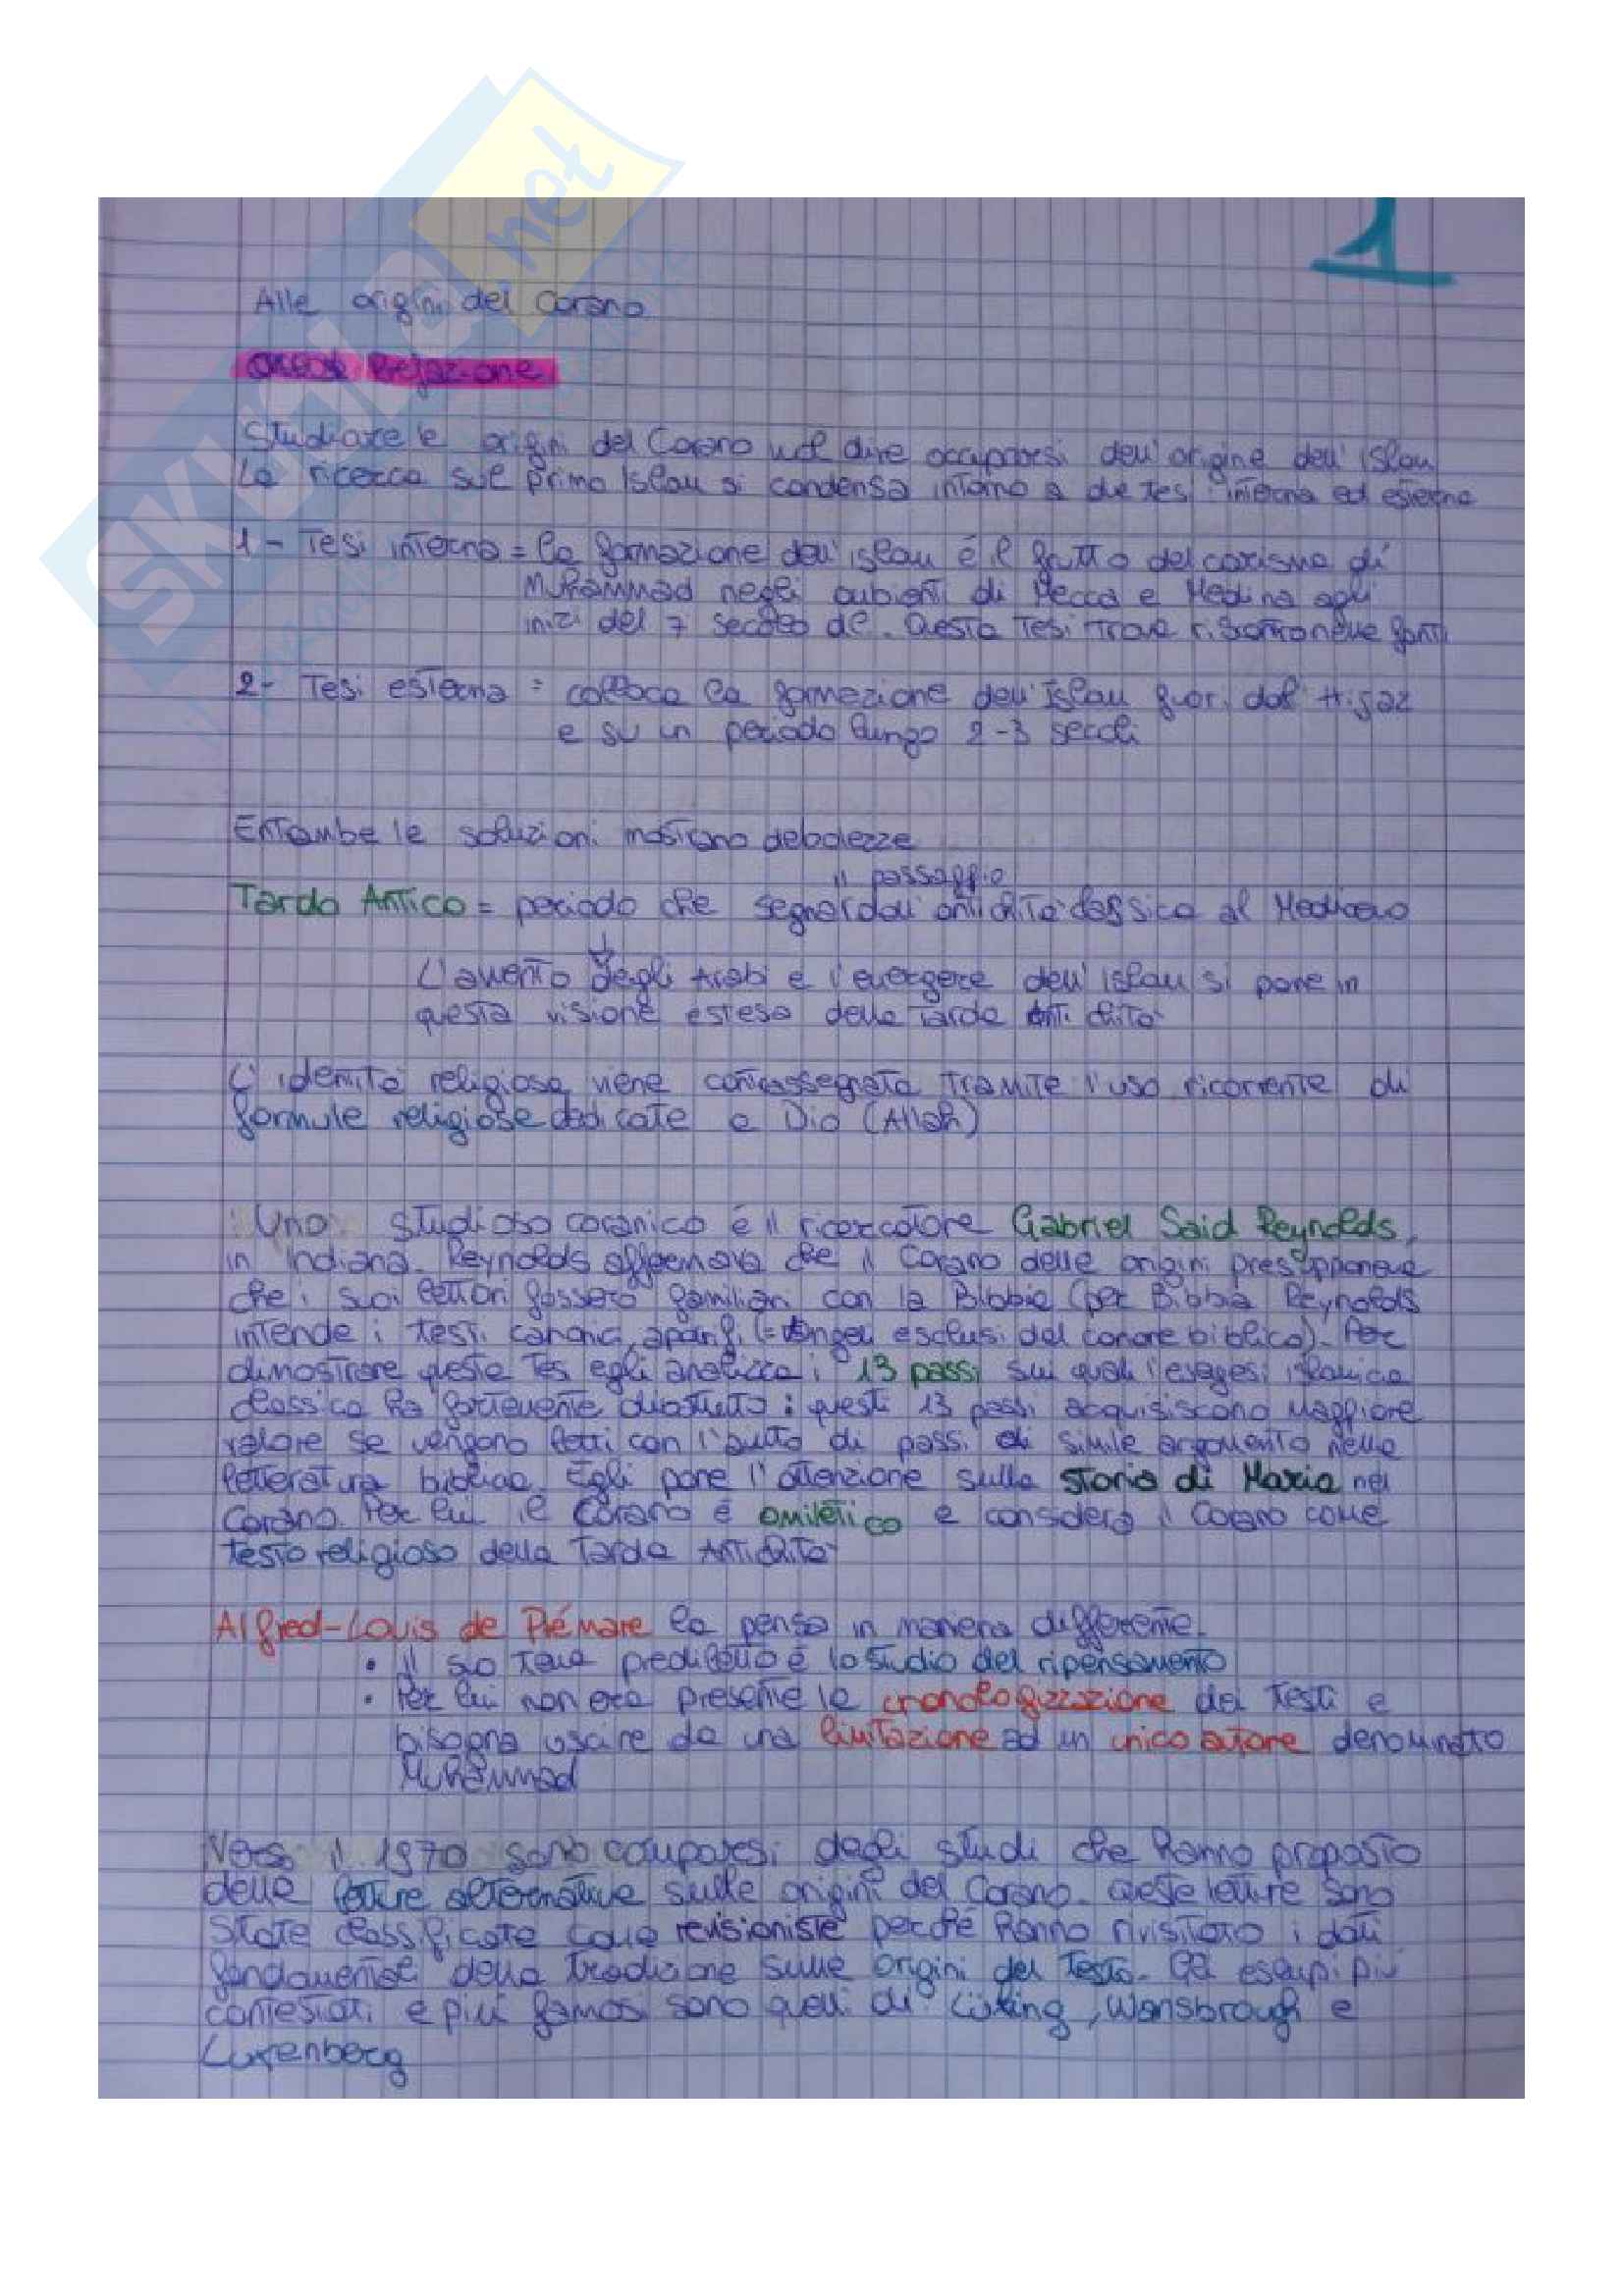 SKUOLA.net
1
Alle origini del Corano
Prefazione
Studiare le origini del Corano vuol dire occuparsi dell'origine dell'Islam
La ricerca sul primo Islam si condensa intorno a due tesi: interna ed esterna
1- Tesi interna = la formazione dell'islam è il frutto del carisma di
Muhammad negli ambienti di Mecca e Medina agli
inizi del 7 secolo dC. Questa tesi trova riscontro nelle fonti
2- Tesi esterna = colloca la formazione dell'Islam fuori dal Hijaz
e su un periodo lungo 2-3 secoli
Entrambe le soluzioni mostrano debolezze
il passaggio
Tardo Antico = periodo che segna dall'antichità classica al Medioevo
L'avvento degli Arabi e l'emergere dell'Islam si pone in
questa visione estesa della Tarda Antichità
L'identità religiosa viene contrassegnata tramite l'uso ricorrente di
formule religiose dedicate a Dio (Allah)
Uno studioso coranico è il ricercatore Gabriel Said Reynolds,
in Indiana. Reynolds affermava che il Corano delle origini presupponeva
che i suoi lettori fossero familiari con la Bibbia (per Bibbia Reynolds
intende i testi canonici, apocrifi (= Vangeli esclusi dal canone biblico). Per
dimostrare questa tesi egli analizza i 13 passi sui quali l'esegesi islamica
classica ha fortemente dibattuto: questi 13 passi acquisiscono maggiore
valore se vengono letti con l'aiuto di passi di simile argomento nella
letteratura biblica. Egli pone l'attenzione sulla storia di Maria nel
Corano. Per lui il Corano è omiletico e considera il Corano come
testo religioso della Tarda Antichità
Alfred-Louis de Prémare la pensa in maniera differente.
• il suo tema prediletto è lo studio del ripensamento
• Per lui non era presente la cronologizzazione dei testi e
bisogna uscire da una limitazione ad un unico autore denominato
Muhammad
Verso il 1970 sono comparsi degli studi che hanno proposto
delle letture alternative sulle origini del Corano. Queste letture sono
state classificate come revisioniste perché hanno rivisitato i dati
fondamentali della tradizione sulle origini del testo. Gli esempi più
contestati e più famosi sono quelli di Lüling, Wansbrough e
Luxenberg